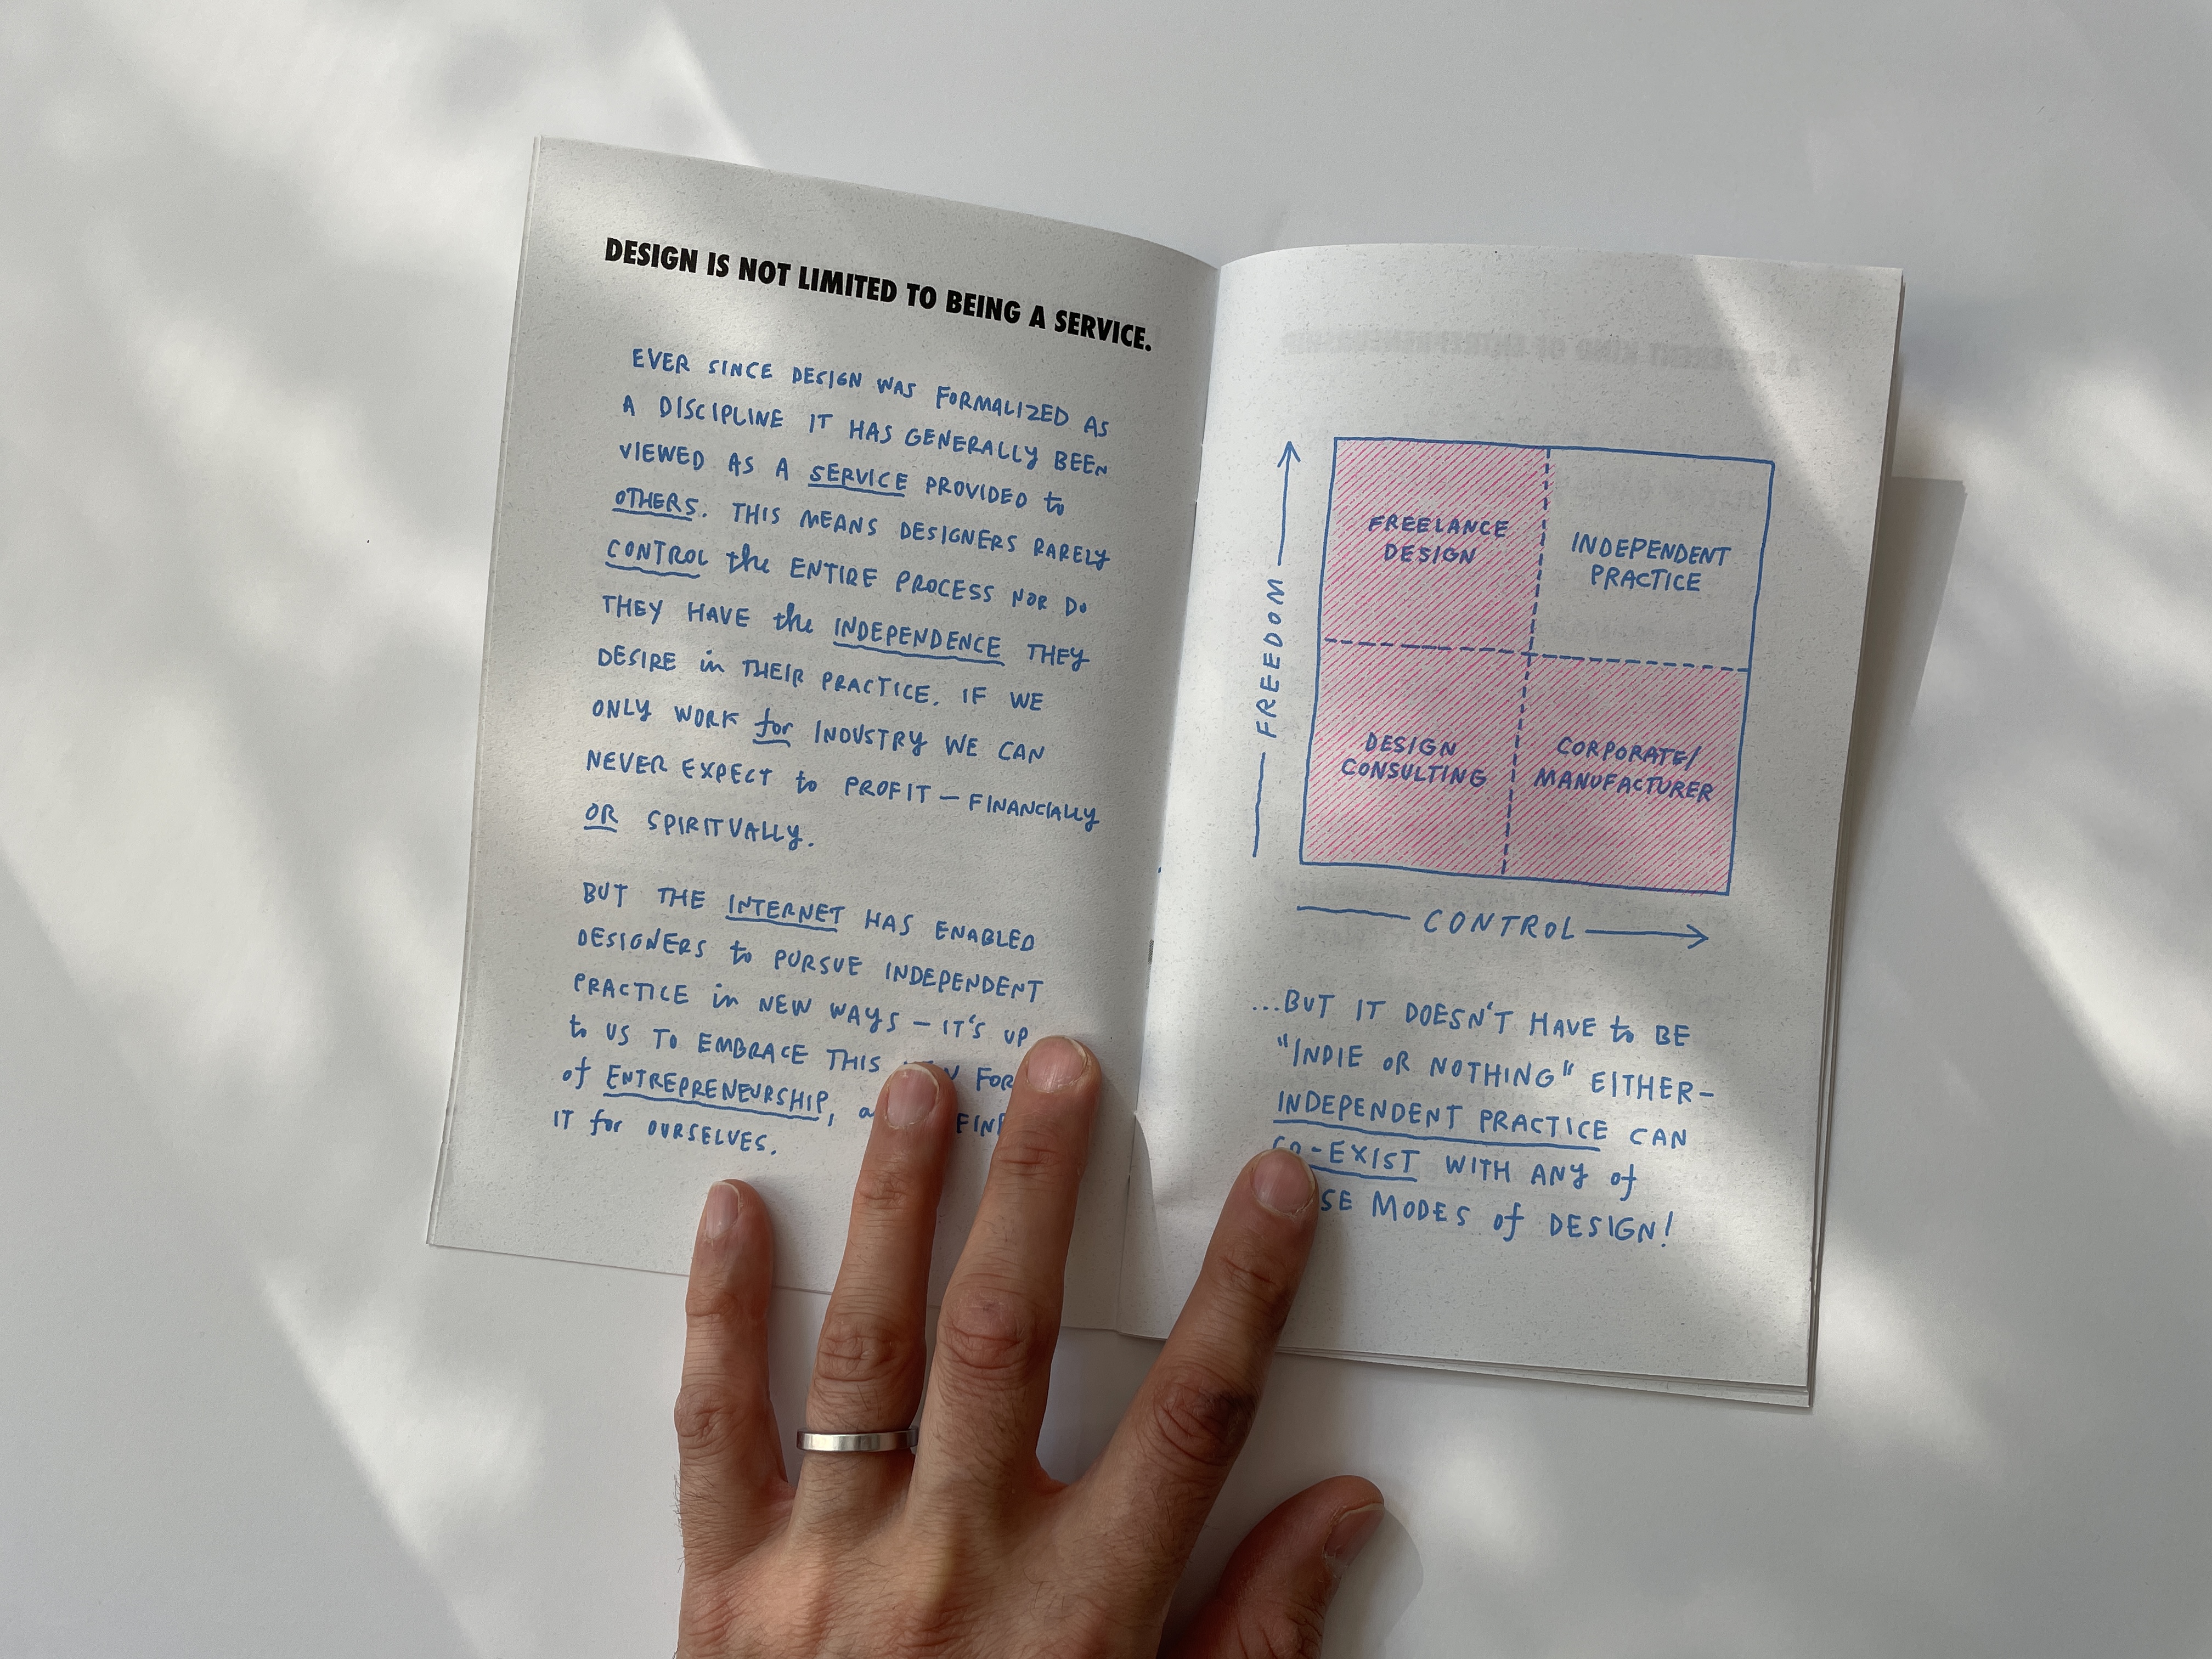 DESIGN IS NOT LIMITED TO BEING A SERVICE.
EVER SINCE DESIGN WAS FORMALIZED AS
A DISCIPLINE IT HAS GENERALLY BEEN
VIEWED AS A SERVICE PROVIDED to
OTHERS. THIS MEANS DESIGNERS RARELY
CONTROL the ENTIRE PROCESS NOR DO
THEY HAVE the INDEPENDENCE THEY
DESIRE in THEIR PRACTICE. IF WE
ONLY WORK for INDUSTRY WE CAN
NEVER EXPECT to PROFIT — FINANCIALLY
OR SPIRITUALLY.
BUT THE INTERNET HAS ENABLED
DESIGNERS to PURSUE INDEPENDENT
PRACTICE in NEW WAYS — IT'S UP
to US TO EMBRACE THIS
of ENTREPRENEURSHIP,
IT for OURSELVES.
FREEDOM
FREELANCE
DESIGN
INDEPENDENT
PRACTICE
DESIGN
CONSULTING
CORPORATE/
MANUFACTURER
CONTROL
...BUT IT DOESN'T HAVE to BE
"INDIE OR NOTHING" EITHER—
INDEPENDENT PRACTICE CAN
CO-EXIST WITH ANY of
MODES of DESIGN!